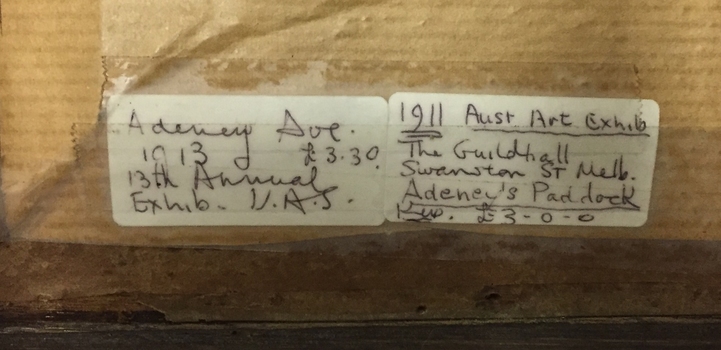 Adeney Ave.
1913 £3.30
13th Annual
Exhib. V.A.S.
1911 Aust Art Exhib
The Guildhall
Swanston St Melb.
Adeney's Paddock
Kew. £3-0-0